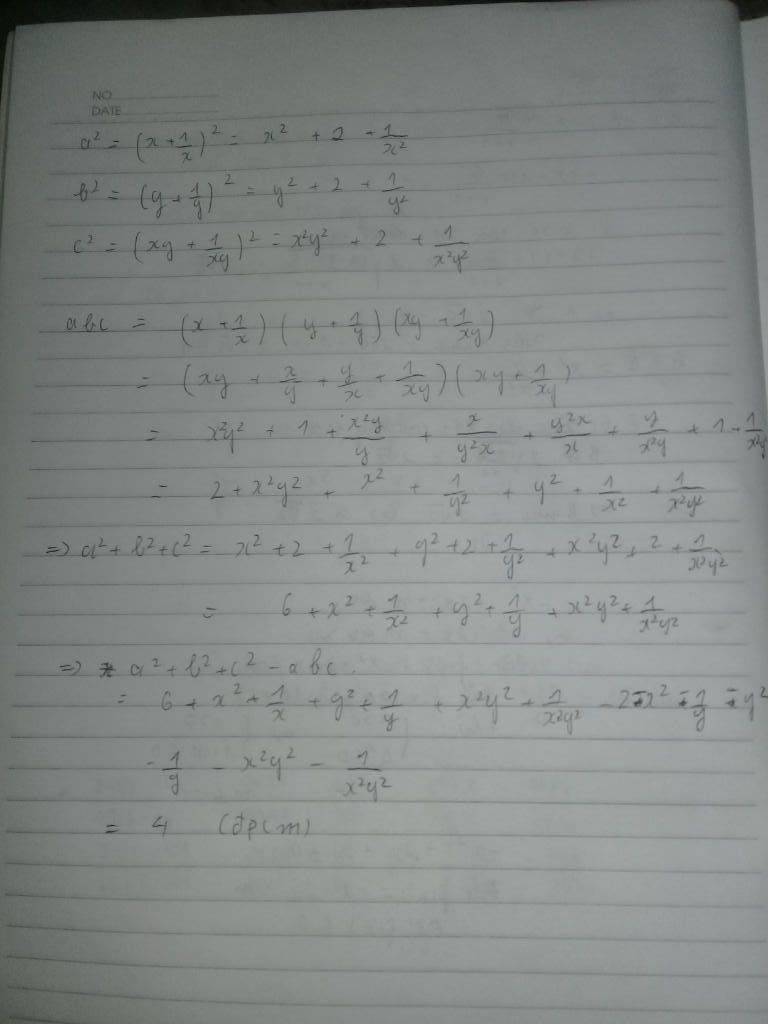 NO
DATE
a² = (x + 1/x)² = x² + 2 + 1/x²
b² = (y + 1/y)² = y² + 2 + 1/y²
c² = (xy + 1/xy)² = x²y² + 2 + 1/x²y²
abc = (x + 1/x) (y + 1/y) (xy + 1/xy)
= (xy + x/y + y/x + 1/xy) (xy + 1/xy)
= x²y² + 1 + x²y/y + x/y²x + y²x/x + y/x²y + 1 + 1/x²y
= 2 + x²y² + x² + 1/y² + y² + 1/x² + 1/x²y²
=> a² + b² + c² = x² + 2 + 1/x² + y² + 2 + 1/y² + x²y² + 2 + 1/x²y²
= 6 + x² + 1/x² + y² + 1/y + x²y² + 1/x²y²
=> a² + b² + c² - abc.
= 6 + x² + 1/x + y² + 1/y + x²y² + 1/x²y² - 2 - x² - 1/y - y²
- 1/y - x²y² - 1/x²y²
= 4 (đpcm)